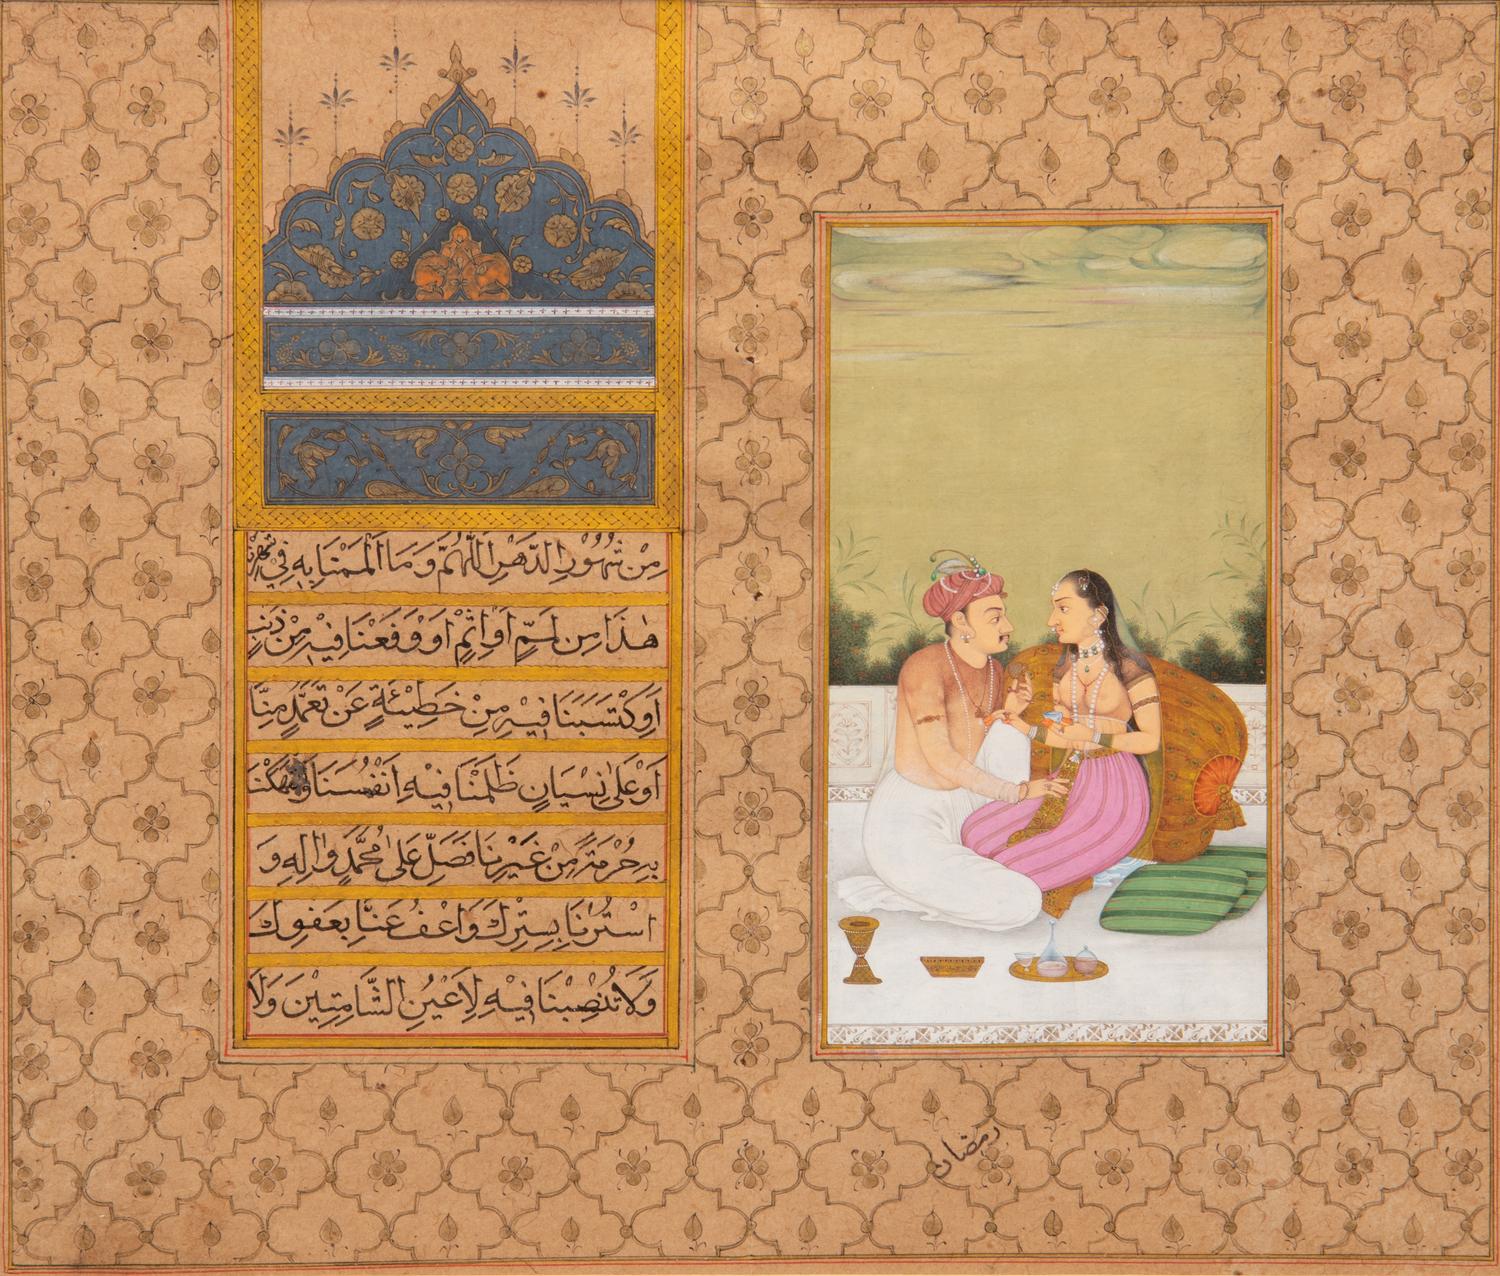 مِنْ شُهُورِ الدَّهْرِ اَللّٰهُمَّ وَمَا اَلْمَمْنَا بِهِ فِي شَهْرِنَا
هٰذَا مِن لَمَمٍ اَوْ اِثْمٍ اَوْ وَقَعْنَا فِيْهِ مِنْ ذَنْبٍ
اَوِ كْتَسَبْنَا فِيْهِ مِنْ خَطِيْئَةٍ عَنْ تَعَمُّدٍ مِنَّا
اَوْ عَلٰى نِسْيَانٍ ظَلَمْنَا فِيْهِ اَنْفُسَنَا وَانْتَهَكْنَا
بِهِ حُرْمَةً مِنْ غَيْرِنَا فَصَلِّ عَلٰى مُحَمَّدٍ وَاٰلِهِ وَ
اسْتُرْنَا بِسِتْرِكَ وَاعْفُ عَنَّا بِعَفْوِكَ
وَلَا تُنْصِبْنَا فِيْهِ لِاَعْيُنِ الشَّامِتِيْنَ وَلَا
رمضان